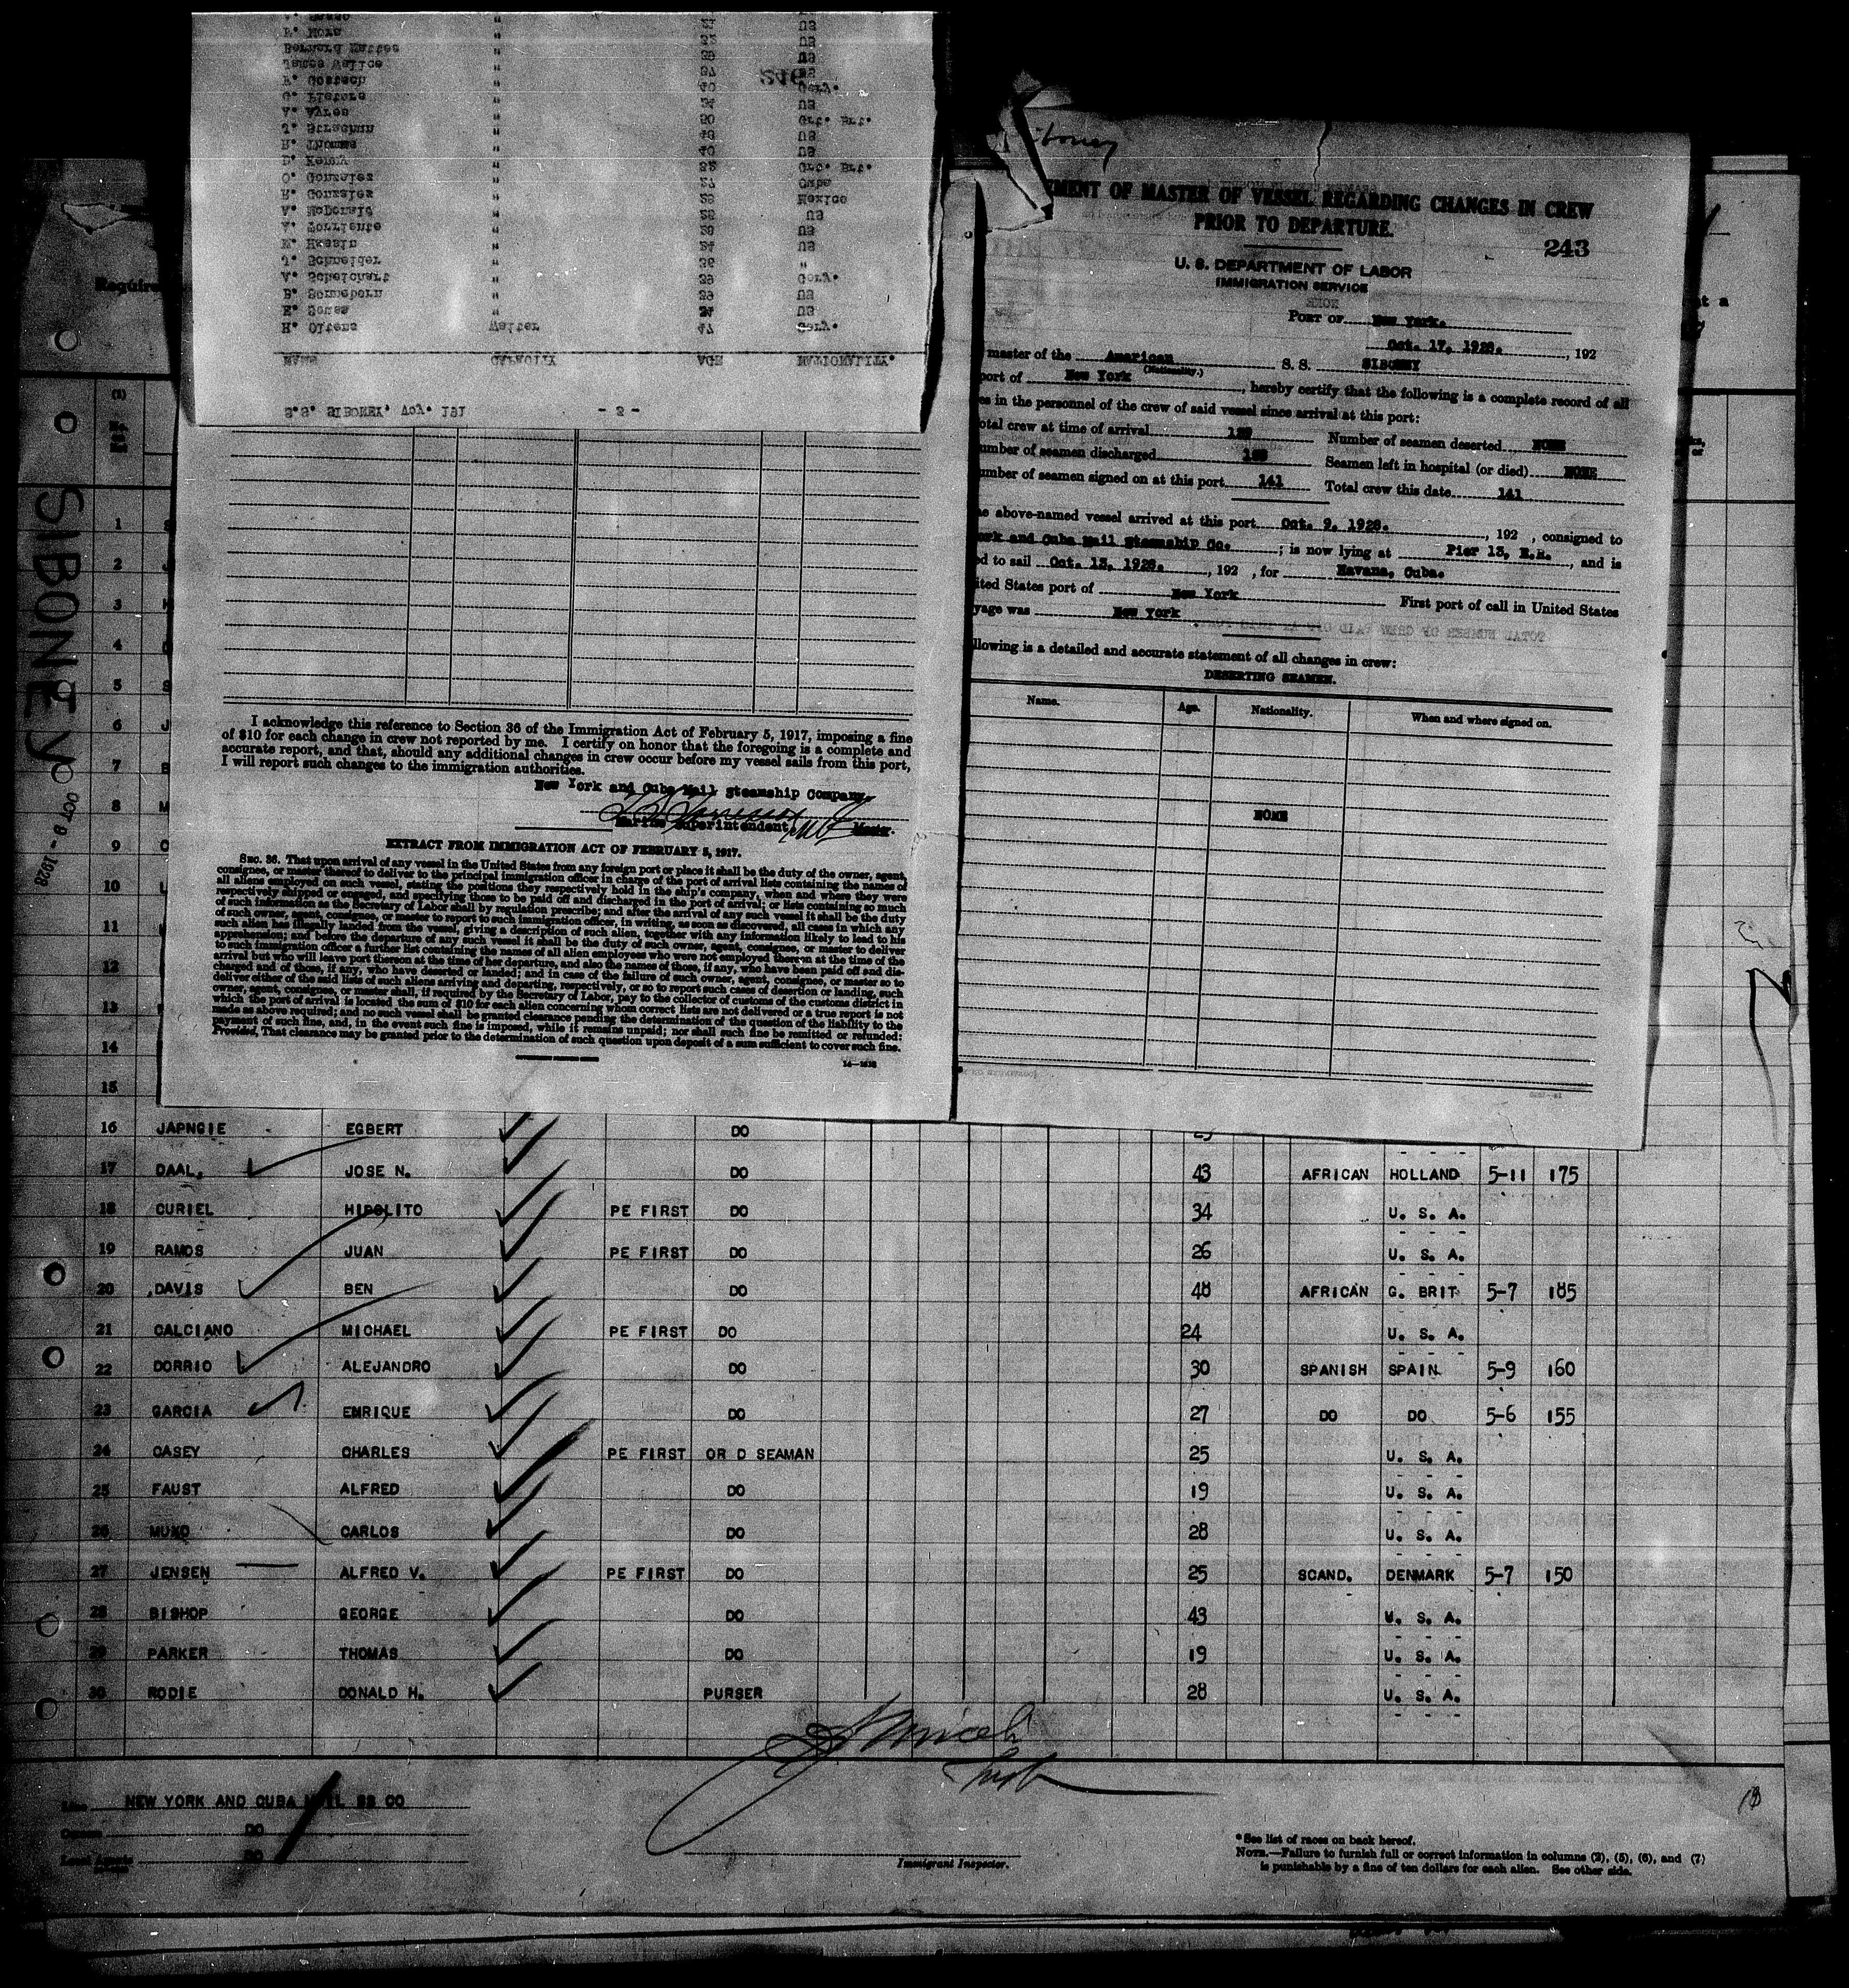 S.S. SIBONEY, Voy. 131 - 2 -
NAME CAPACITY AGE NATIONALITY.
H. Oltens Waiter 47 Gery.
E. Sones " 24 US
B. Sonneborn " 29 US
A. Scheichart " 39 Gery.
J. Schneider " 36 "
M. Hassin " 24 US
A. Torriente " 28 US
A. McDonald " 28 US
R. Gonzales " 28 Mexico
O. Gonzales " 27 Cuba
D. Kenny " 32 Grt. Brt.
H. Thomas " 40 US
T. Strachan " 48 US
A. Ayres " 50 Grt. Brt.
G. Pletora " 24 US
F. Gostsch " 40 Gery.
James Waltco " 37 US
Bernard Mattes " 39 US
F. Mora " 32 US
246
I acknowledge this reference to Section 36 of the Immigration Act of February 5, 1917, imposing a fine
of $10 for each change in crew not reported by me. I certify on honor that the foregoing is a complete and
accurate report, and that, should any additional changes in crew occur before my vessel sails from this port,
I will report such changes to the immigration authorities.
New York and Cuba Mail Steamship Company.
Marine Superintendent Master.
EXTRACT FROM IMMIGRATION ACT OF FEBRUARY 5, 1917.
SEC. 36. That upon arrival of any vessel in the United States from any foreign port or place it shall be the duty of the owner, agent,
consignee, or master thereof to deliver to the principal immigration officer in charge of the port of arrival lists containing the names of
all aliens employed on such vessel, stating the positions they respectively hold in the ship's company, when and where they were
respectively shipped or engaged, and specifying those to be paid off and discharged in the port of arrival; or lists containing so much
of such information as the Secretary of Labor shall by regulation prescribe; and after the arrival of any such vessel it shall be the duty
of such owner, agent, consignee, or master to report to such immigration officer, in writing, as soon as discovered, all cases in which any
such alien has illegally landed from the vessel, giving a description of such alien, together with any information likely to lead to his
apprehension; and before the departure of any such vessel it shall be the duty of such owner, agent, consignee, or master to deliver
to such immigration officer a further list containing the names of all alien employees who were not employed thereon at the time of the
arrival but who will leave port thereon at the time of her departure, and also the names of those, if any, who have been paid off and dis-
charged and of those, if any, who have deserted or landed; and in case of the failure of such owner, agent, consignee, or master so to
deliver either of the said lists of such aliens arriving and departing, respectively, or so to report such cases of desertion or landing, such
owner, agent, consignee, or master shall, if required by the Secretary of Labor, pay to the collector of customs of the customs district in
which the port of arrival is located the sum of $10 for each alien concerning whom correct lists are not delivered or a true report is not
made as above required; and no such vessel shall be granted clearance pending the determination of the question of the liability to the
payment of such fine, and, in the event such fine is imposed, while it remains unpaid; nor shall such fine be remitted or refunded:
Provided, That clearance may be granted prior to the determination of such question upon deposit of a sum sufficient to cover such fine.
MENT OF MASTER OF VESSEL REGARDING CHANGES IN CREW
PRIOR TO DEPARTURE.
243
U. S. DEPARTMENT OF LABOR
IMMIGRATION SERVICE
PORT OF New York.
Oct. 17, 1928. , 192
master of the American S. S. SIBONEY
(Nationality.)
port of New York , hereby certify that the following is a complete record of all
es in the personnel of the crew of said vessel since arrival at this port:
otal crew at time of arrival Number of seamen deserted NONE
umber of seamen discharged Seamen left in hospital (or died) NONE
umber of seamen signed on at this port 141 Total crew this date 141
he above-named vessel arrived at this port Oct. 9, 1928. , 192 , consigned to
ork and Cuba Mail Steamship Co. ; is now lying at Pier 13, E.R. , and is
ed to sail Oct. 13, 1928. , 192 , for Havana, Cuba.
ited States port of New York First port of call in United States
yage was New York
llowing is a detailed and accurate statement of all changes in crew:
DESERTING SEAMEN.
Name. Age. Nationality. When and where signed on.
NONE
Require
(1)
SIBONEY
OCT 9 - 1928
1
2
3
4
5
6
7
8
9
10
11
12
13
14
15
16 JAPNGIE EGBERT DO
17 DAAL, JOSE N. DO 43 AFRICAN HOLLAND 5-11 175
18 CURIEL HIPOLITO PE FIRST DO 34 U. S. A.
19 RAMOS JUAN PE FIRST DO 26 U. S. A.
20 DAVIS BEN DO 48 AFRICAN G. BRIT 5-7 185
21 CALCIANO MICHAEL PE FIRST DO 24 U. S. A.
22 DORRIO ALEJANDRO DO 30 SPANISH SPAIN 5-9 160
23 GARCIA ENRIQUE DO 27 DO DO 5-6 155
24 CASEY CHARLES PE FIRST OR D SEAMAN 25 U. S. A.
25 FAUST ALFRED DO 19 U. S. A.
26 CARLOS DO 28 U. S. A.
27 JENSEN ALFRED V. PE FIRST DO 25 SCAND. DENMARK 5-7 150
28 BISHOP GEORGE DO 43 U. S. A.
29 PARKER THOMAS DO 19 U. S. A.
30 RODIE DONALD H. PURSER 28 U. S. A.
Line NEW YORK AND CUBA MAIL SS CO
Owners DO
Local Agents DO
Immigrant Inspector.
* See list of races on back hereof.
NOTE.—Failure to furnish full or correct information in columns (2), (5), (6), and (7)
is punishable by a fine of ten dollars for each alien. See other side.